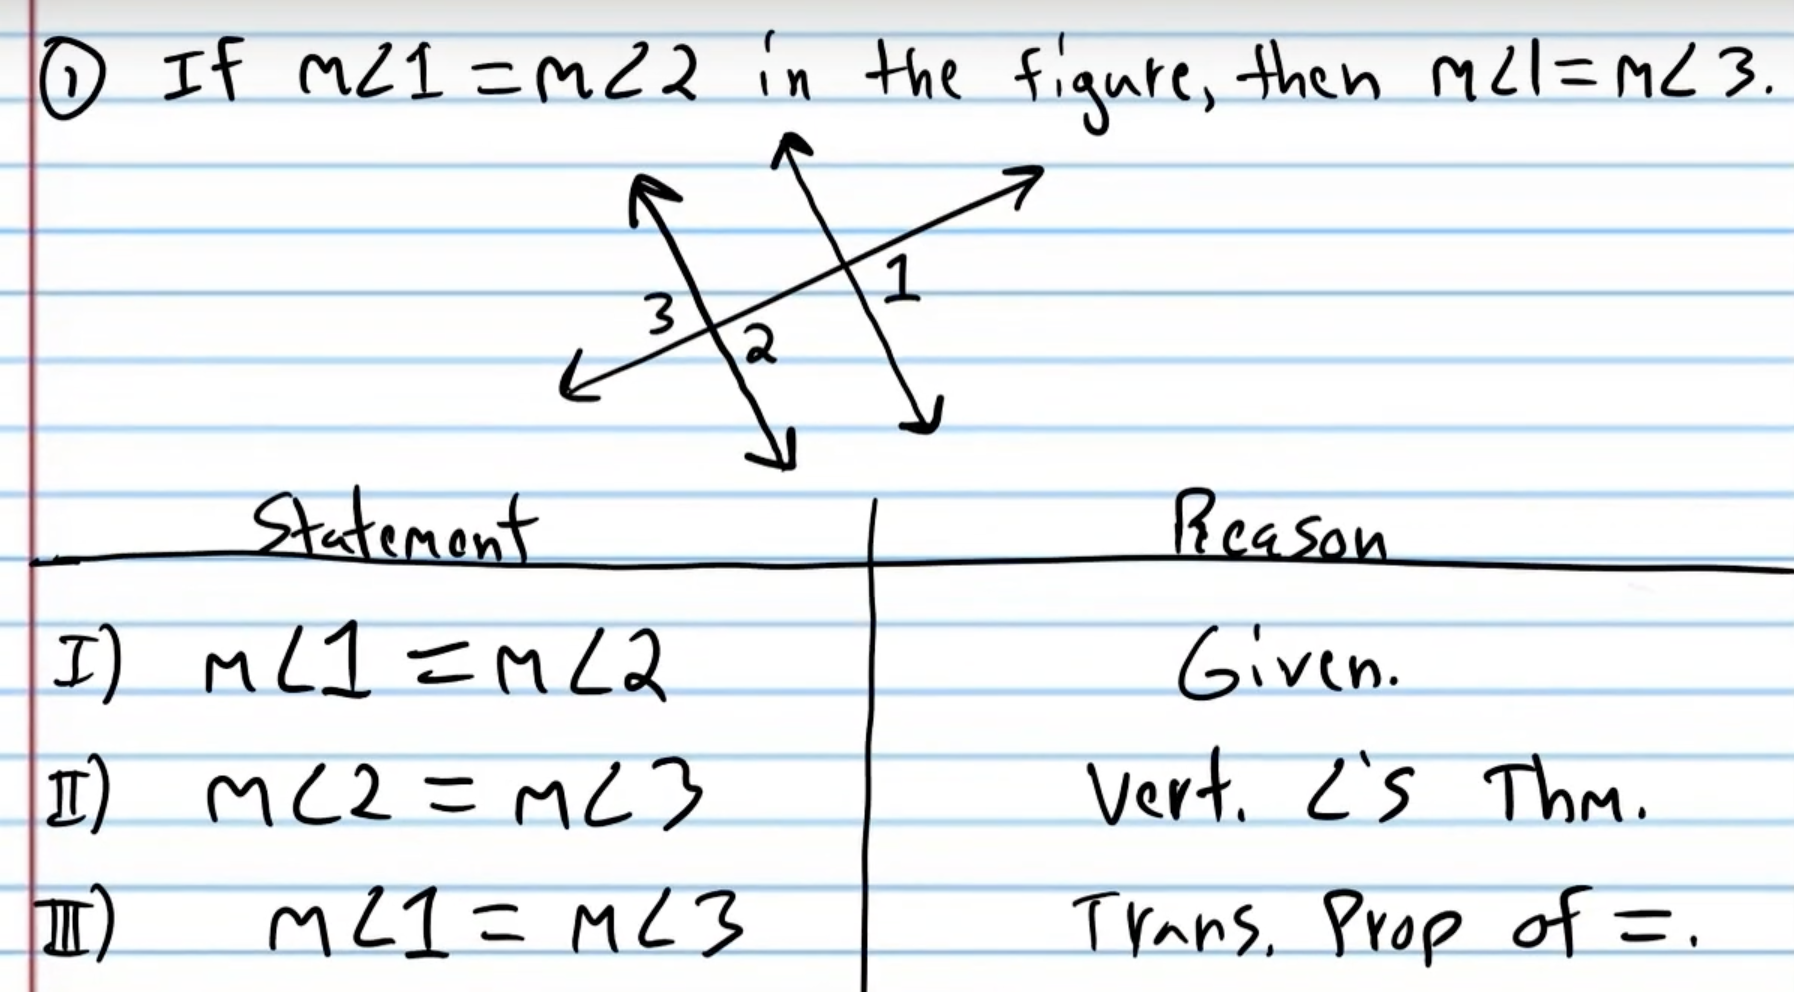 ① If m∠1 = m∠2 in the figure, then m∠1 = m∠3.
1
3
2
Statement Reason
I) m∠1 = m∠2 Given.
II) m∠2 = m∠3 Vert. ∠'s Thm.
III) m∠1 = m∠3 Trans. Prop of =.